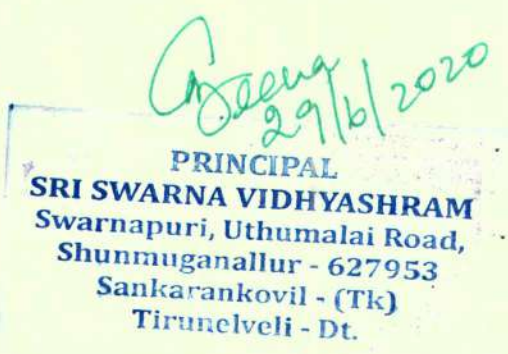 29/6/2020
PRINCIPAL
SRI SWARNA VIDHYASHRAM
Swarnapuri, Uthumalai Road,
Shunmuganallur - 627953
Sankarankovil - (Tk)
Tirunelveli - Dt.